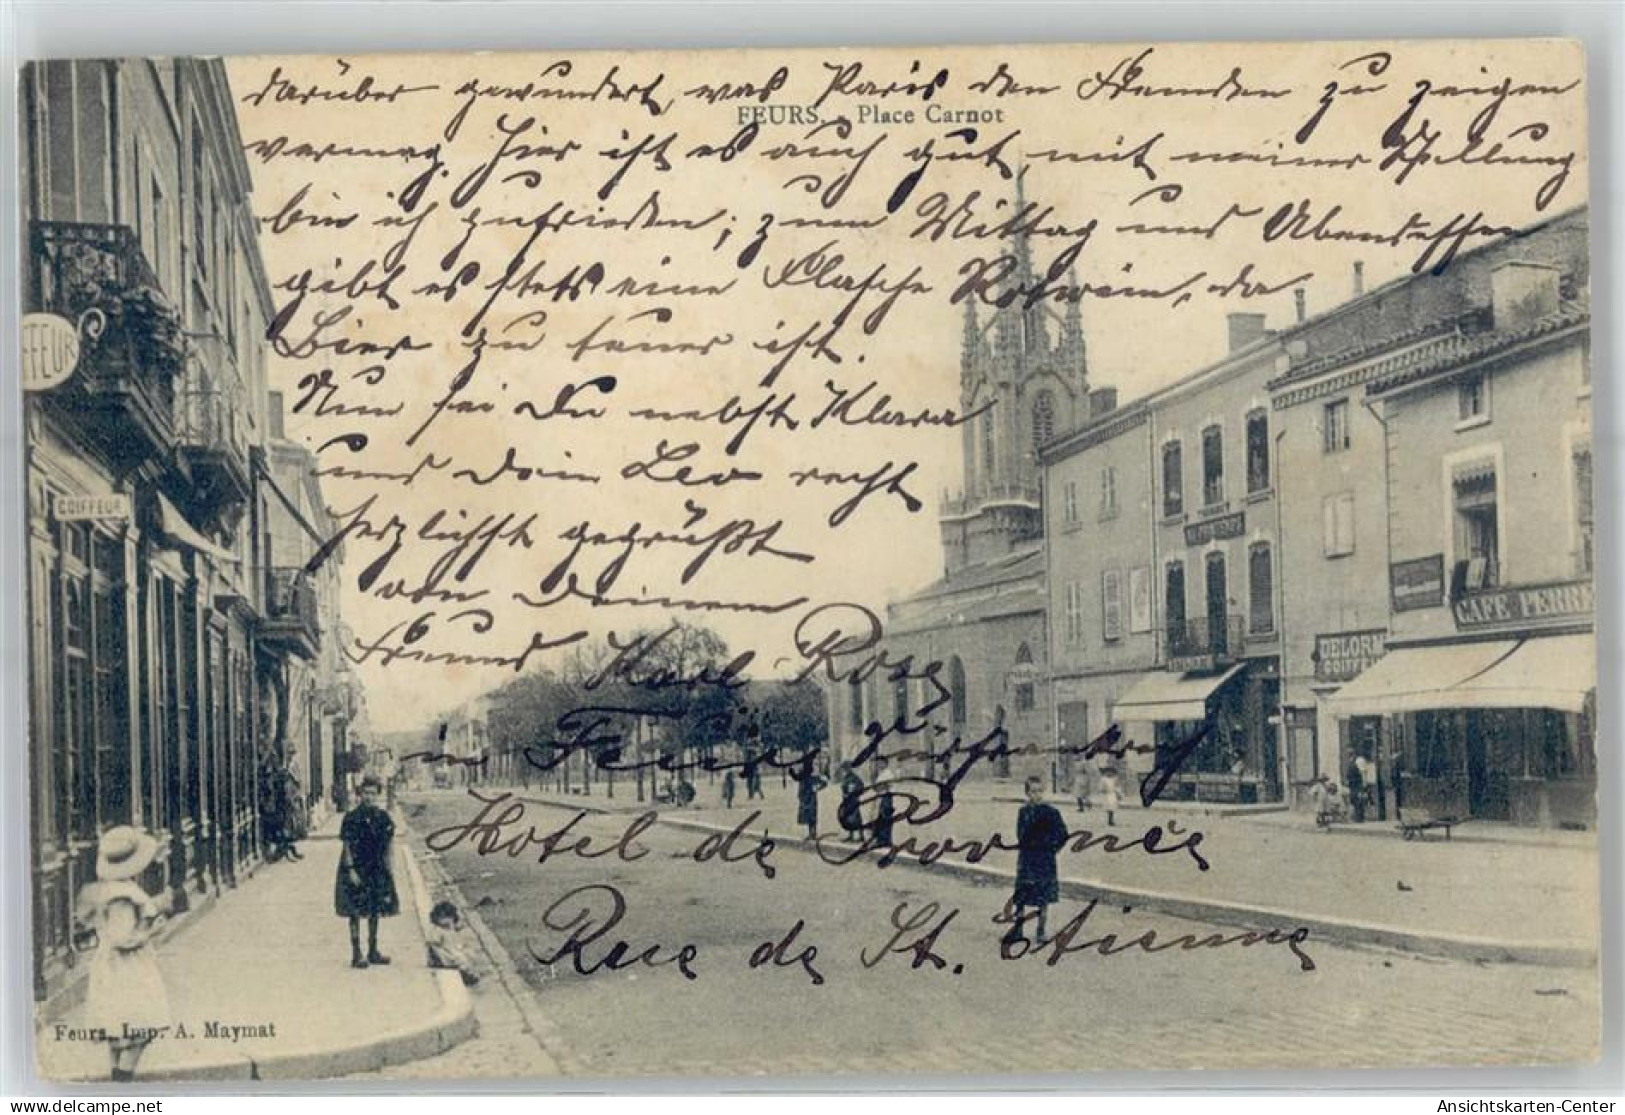 darüber gewundert, was Paris den Fremden zu zeigen
FEURS. - Place Carnot
vermag. Hier ist es auch gut mit meiner Stellung
bin ich zufrieden; zum Mittag und Abendessen
gibt es stets eine Flasche Rotwein, da
Bier zu teuer ist.
Nun sei Du nebst Klara
und Dein Leo recht
herzlichst gegrüßt
von Deinem
Freund Karl Rose
in Feurs Südfrankreich
Hotel de Provence
Rue de St. Etienne
FFEUR
COIFFEUR
DELORM
COIFFE
CAFÉ PERRE
Feurs, Imp. A. Maymat
delcampe.net
Ansichtskarten-Center